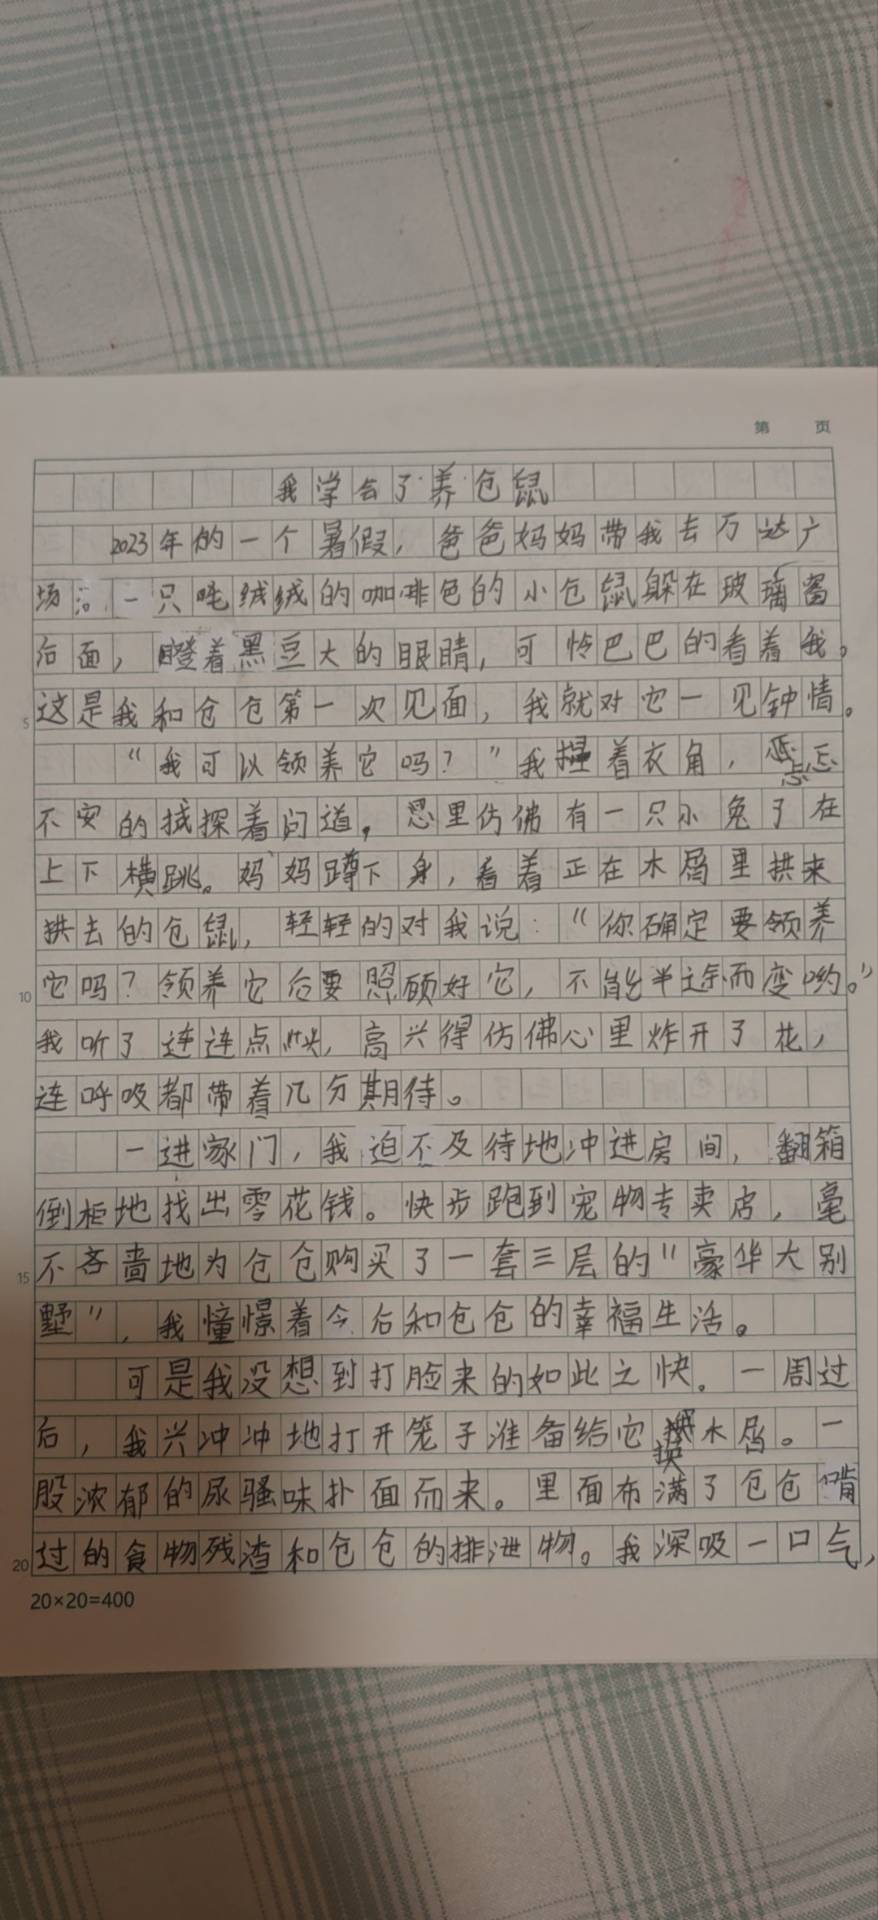 第 页
我学会了养仓鼠
2023年的一个暑假，爸爸妈妈带我去万达广
场：一只毛绒绒的咖啡色的小仓鼠躲在玻璃窗
后面，瞪着黑豆大的眼睛，可怜巴巴的看着我。
5 这是我和仓仓第一次见面，我就对它一见钟情。
“我可以领养它吗？”我捏着衣角，忐忑
不安的试探着问道，思里仿佛有一只小兔子在
上下横跳。妈妈蹲下身，看着正在木屑里拱来
拱去的仓鼠，轻轻的对我说：“你确定要领养
10 它吗？领养它后要照顾好它，不能半途而变哟。”
我听了连连点头，高兴得仿佛心里炸开了花，
连呼吸都带着几分期待。
一进家门，我迫不及待地冲进房间，翻箱
倒柜地找出零花钱。快步跑到宠物专卖店，毫
15 不吝啬地为仓仓购买了一套三层的“豪华大别
墅”，我憧憬着今后和仓仓的幸福生活。
可是我没想到打脸来的如此之快。一周过
后，我兴冲冲地打开笼子准备给它换木屑。一
股浓郁的尿骚味扑面而来。里面布满了仓仓啃
20 过的食物残渣和仓仓的排泄物。我深吸一口气，
20×20=400